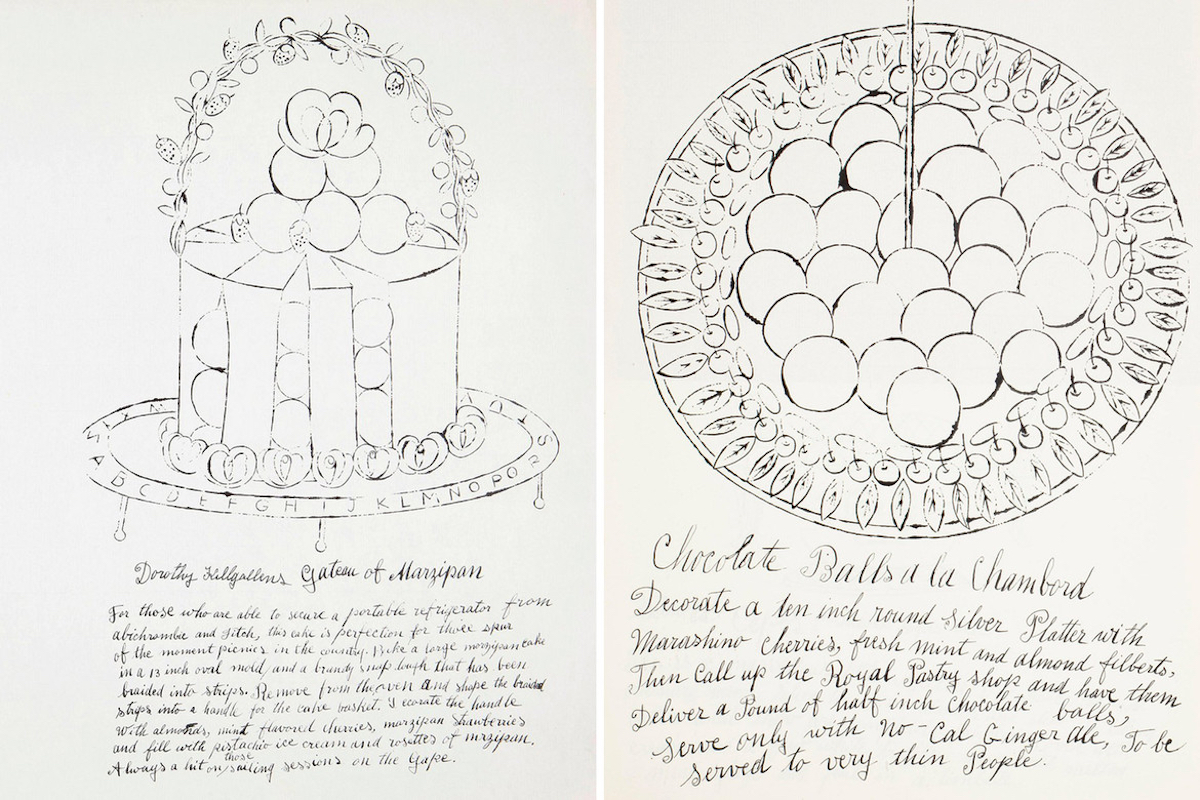 A B C D E F G H I J K L M N O P Q R S T U V W X Y Z
Dorothy Killgallens Gateau of Marzipan
For those who are able to secure a portable refrigerator from
abichrombie and Fitch, this cake is perfection for those spur
of the moment picnics in the country. Bake a large marzipan cake
in a 13 inch oval mold, and a brandy snap dough that has been
braided into strips. Remove from the oven and shape the braided
strips into a handle for the cake basket. Decorate the handle
with almonds, mint flavored cherries, marzipan strawberries
and fill with pistachio ice cream and rosettes of mrzipan.
Always a hit on those sailing sessions on the Gape.
Chocolate Balls a la Chambord
Decorate a ten inch round Silver Platter with
Marashino cherries, fresh mint and almond filberts,
Then Call up the Royal Pastry shop and have them
Deliver a Pound of half inch Chocolate balls,
Serve only with No-Cal Ginger Ale, To be
served to very thin People.